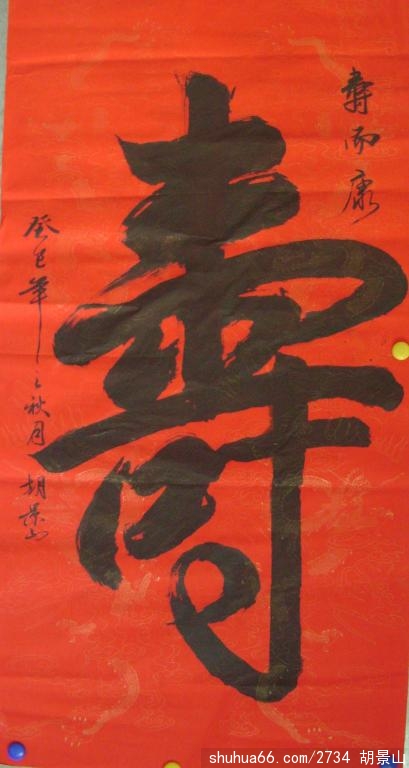 壽而康
壽
癸巳年之秋月 胡景山
shuhua66.com/2734 胡景山